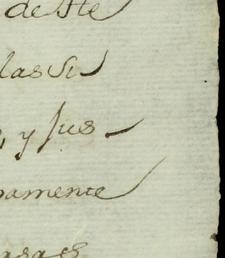 de ste
las Si
, y sus
amente